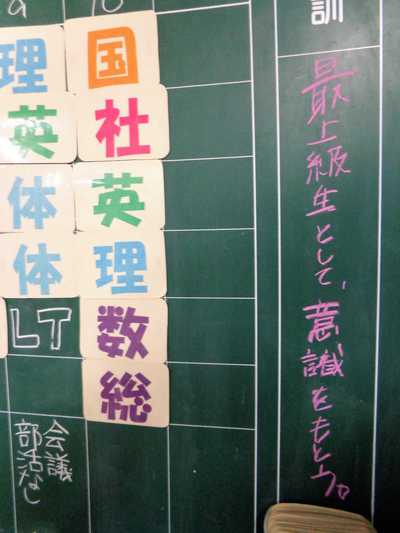 訓
最上級生として、意識をもとう。
10
国
社
英
理
数
総
9
理
英
体
体
LT
会議
部活なし